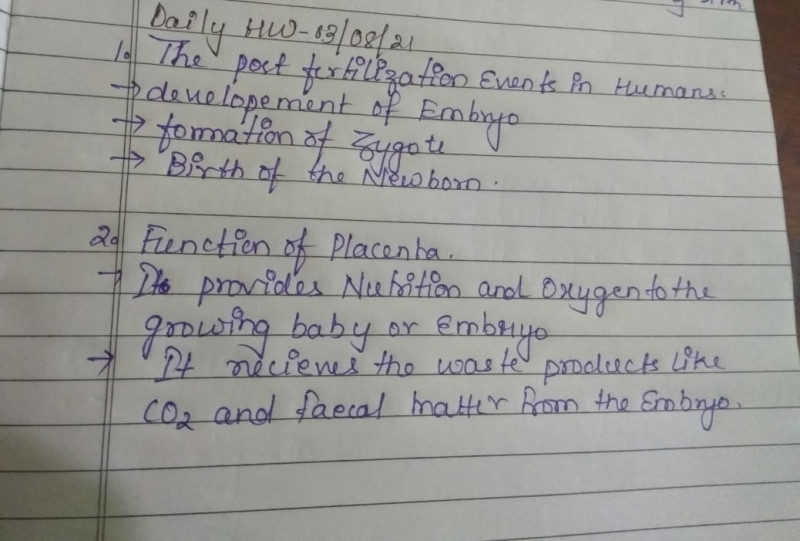 Daily HW-03/08/21
1. The post fertilization Events in Humans:
→ developement of Embryo
→ formation of Zygote
→ Birth of the Newborn.
2. Function of Placenta.
→ It provides Nutrition and Oxygen to the
growing baby or Embryo
→ It recieves the waste products like
CO2 and faecal matter from the Embryo.